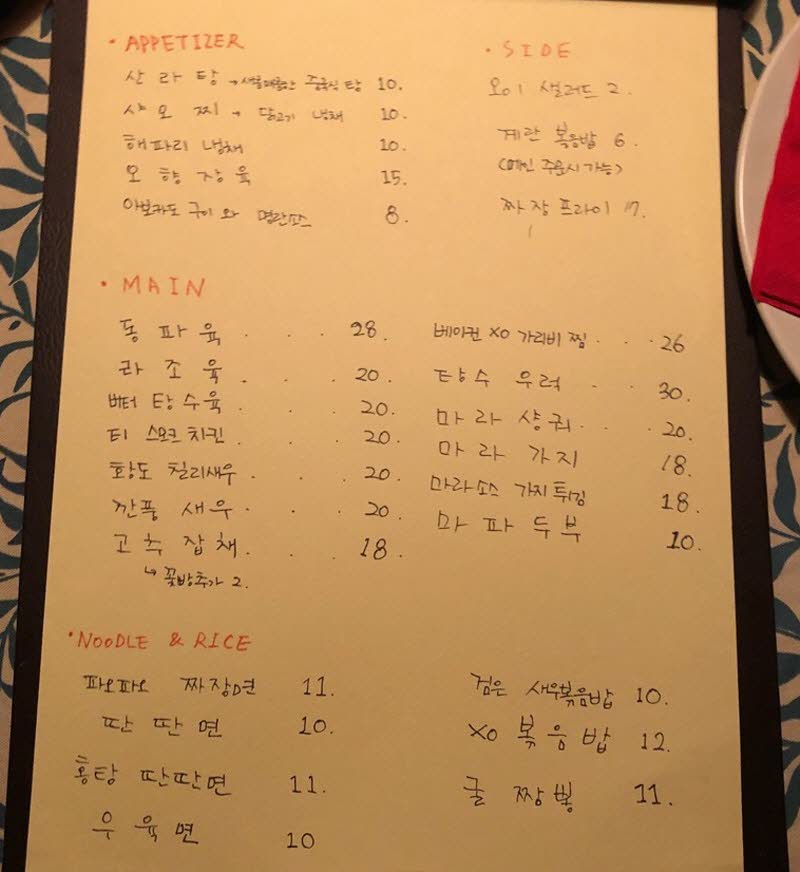 · APPETIZER
산라탕 → 새콤매콤한 중국식 탕 10.
샤오찌 → 닭고기 냉채 10.
해파리 냉채 10.
오향장육 15.
아보카도 구이와 명란소스 8.
· SIDE
오이 샐러드 2.
계란 볶음밥 6.
(메인 주문시 가능)
짜장 프라이 7.
· MAIN
동파육 . . . 28.
라조육 . . . 20.
버터 탕수육 . . . 20.
티 스모크 치킨 . . 20.
황도 칠리새우 . . . 20.
깐풍 새우 . . . 20.
고추잡채 . . . 18.
↳ 꽃빵추가 2.
베이컨 XO 가리비 찜 . . . 26
탕수 우럭 . . 30.
마라샹궈 . . 20.
마라 가지 18.
마라소스 가지튀김 18.
마파두부 10.
· NOODLE & RICE
파오파오 짜장면 11.
딴딴면 10.
홍탕 딴딴면 11.
우육면 10
검은 새우볶음밥 10.
XO 볶음밥 12.
굴 짬뽕 11.